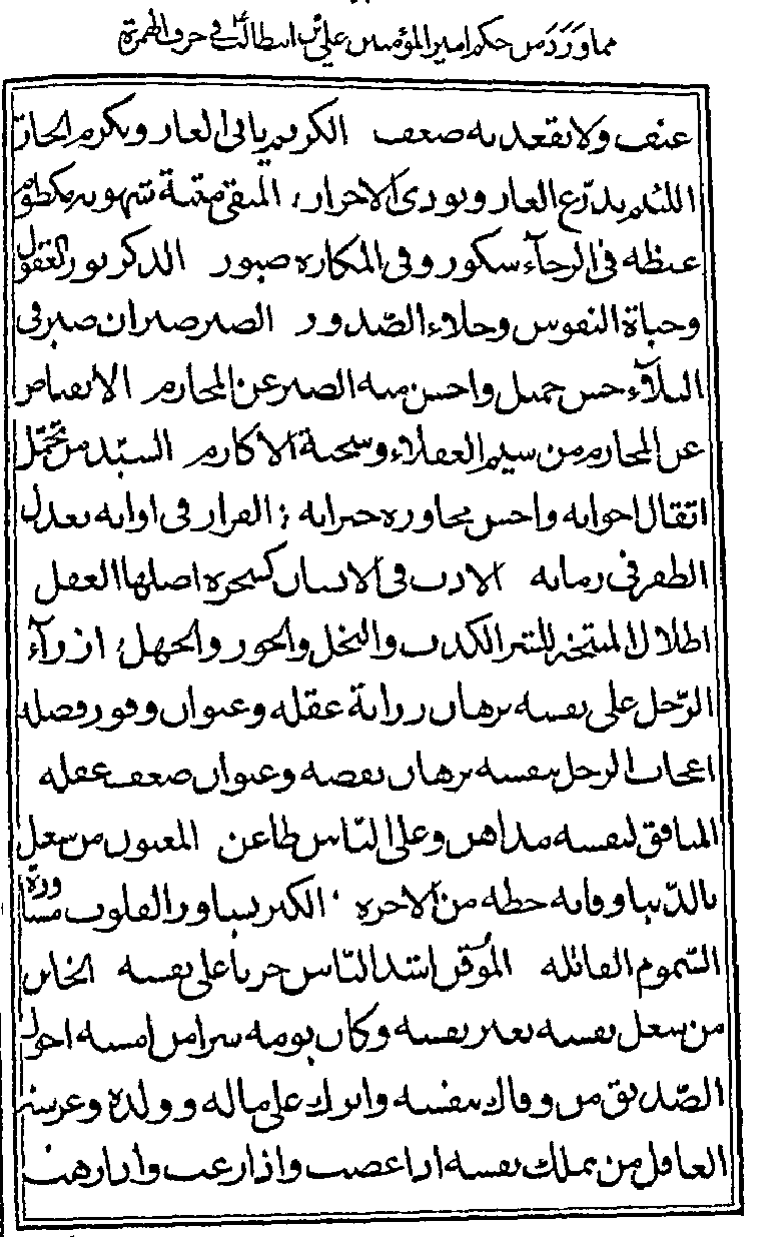 مما ورد من حكم امير المؤمنين علي بن ابيطالب في حرف الهمزة
عنف ولا يقعد به ضعف الكريم يابى العار ويكرم الجار
اللئيم يدرع العار ويوذى الاحرار المتقى ميتة شهوته مكظوم
غيظه فى الرخآء شكور وفى المكاره صبور الذكر نور العقول
وحياة النفوس وجلاء الصّدور الصبر صبران صبر فى
البلآء حسن جميل واحسن منه الصبر عن المحارم الانقباض
عن المحارم من شيم العقلاء وسجية الاكارم السيّد من تحمّل
اثقال اخوانه واحسن مجاورة جيرانه الفرار فى اوانه يعدل
الظفر فى زمانه الادب فى الانسان كشجرة اصلها العقل
الكذب والبخل والجور والجهل ازرآء
الرّجل على نفسه برهان رزانة عقله وعنوان وفور فضله
اعجاب الرجل بنفسه برهان نقصه وعنوان ضعف عقله
المنافق لنفسه مداهن وعلى النّاس طاعن المغبون من شغل
بالدّنيا وفاته حظه من الاخرة الكبر يساور القلوب مساورة
السّموم القاتلة الموقن اشد النّاس حزنا على نفسه الخاسر
من شغل نفسه بغير نفسه وكان يومه شرا من امسه
الصّديق من وقاك بنفسه واثرك على ماله وولده وعرسه
العاقل من يملك نفسه اذا غضب واذا رغب واذا رهب